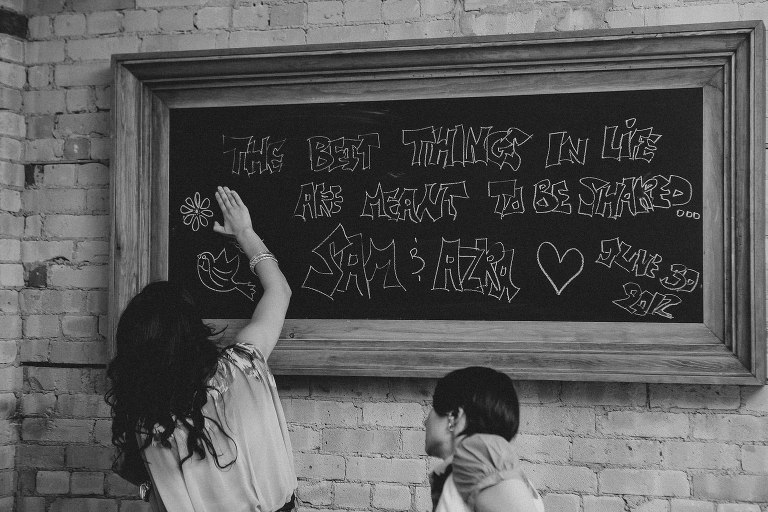 THE BEST THINGS IN LIFE
ARE MEANT TO BE SHARED...
SAM & AZRA JUNE 30
2012